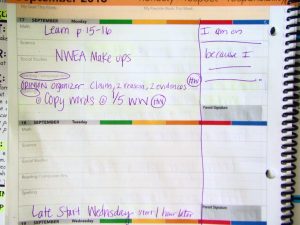 September 2018
17 SEPTEMBER Monday
Math
Learn p 15-16
I am on
Science
NWEA Make ups
because I
Social Studies
OPINION organizer Claim, 2 reason, 2 evidences HW
@ Copy words @ 1/5 W N HW
Parent Signature
18 SEPTEMBER Tuesday
Math
Science
Social Studies
Reading/Language Arts
Spelling
Late Start Wednesday start 1 hour later
Parent Signature
19 SEPTEMBER Wednesday